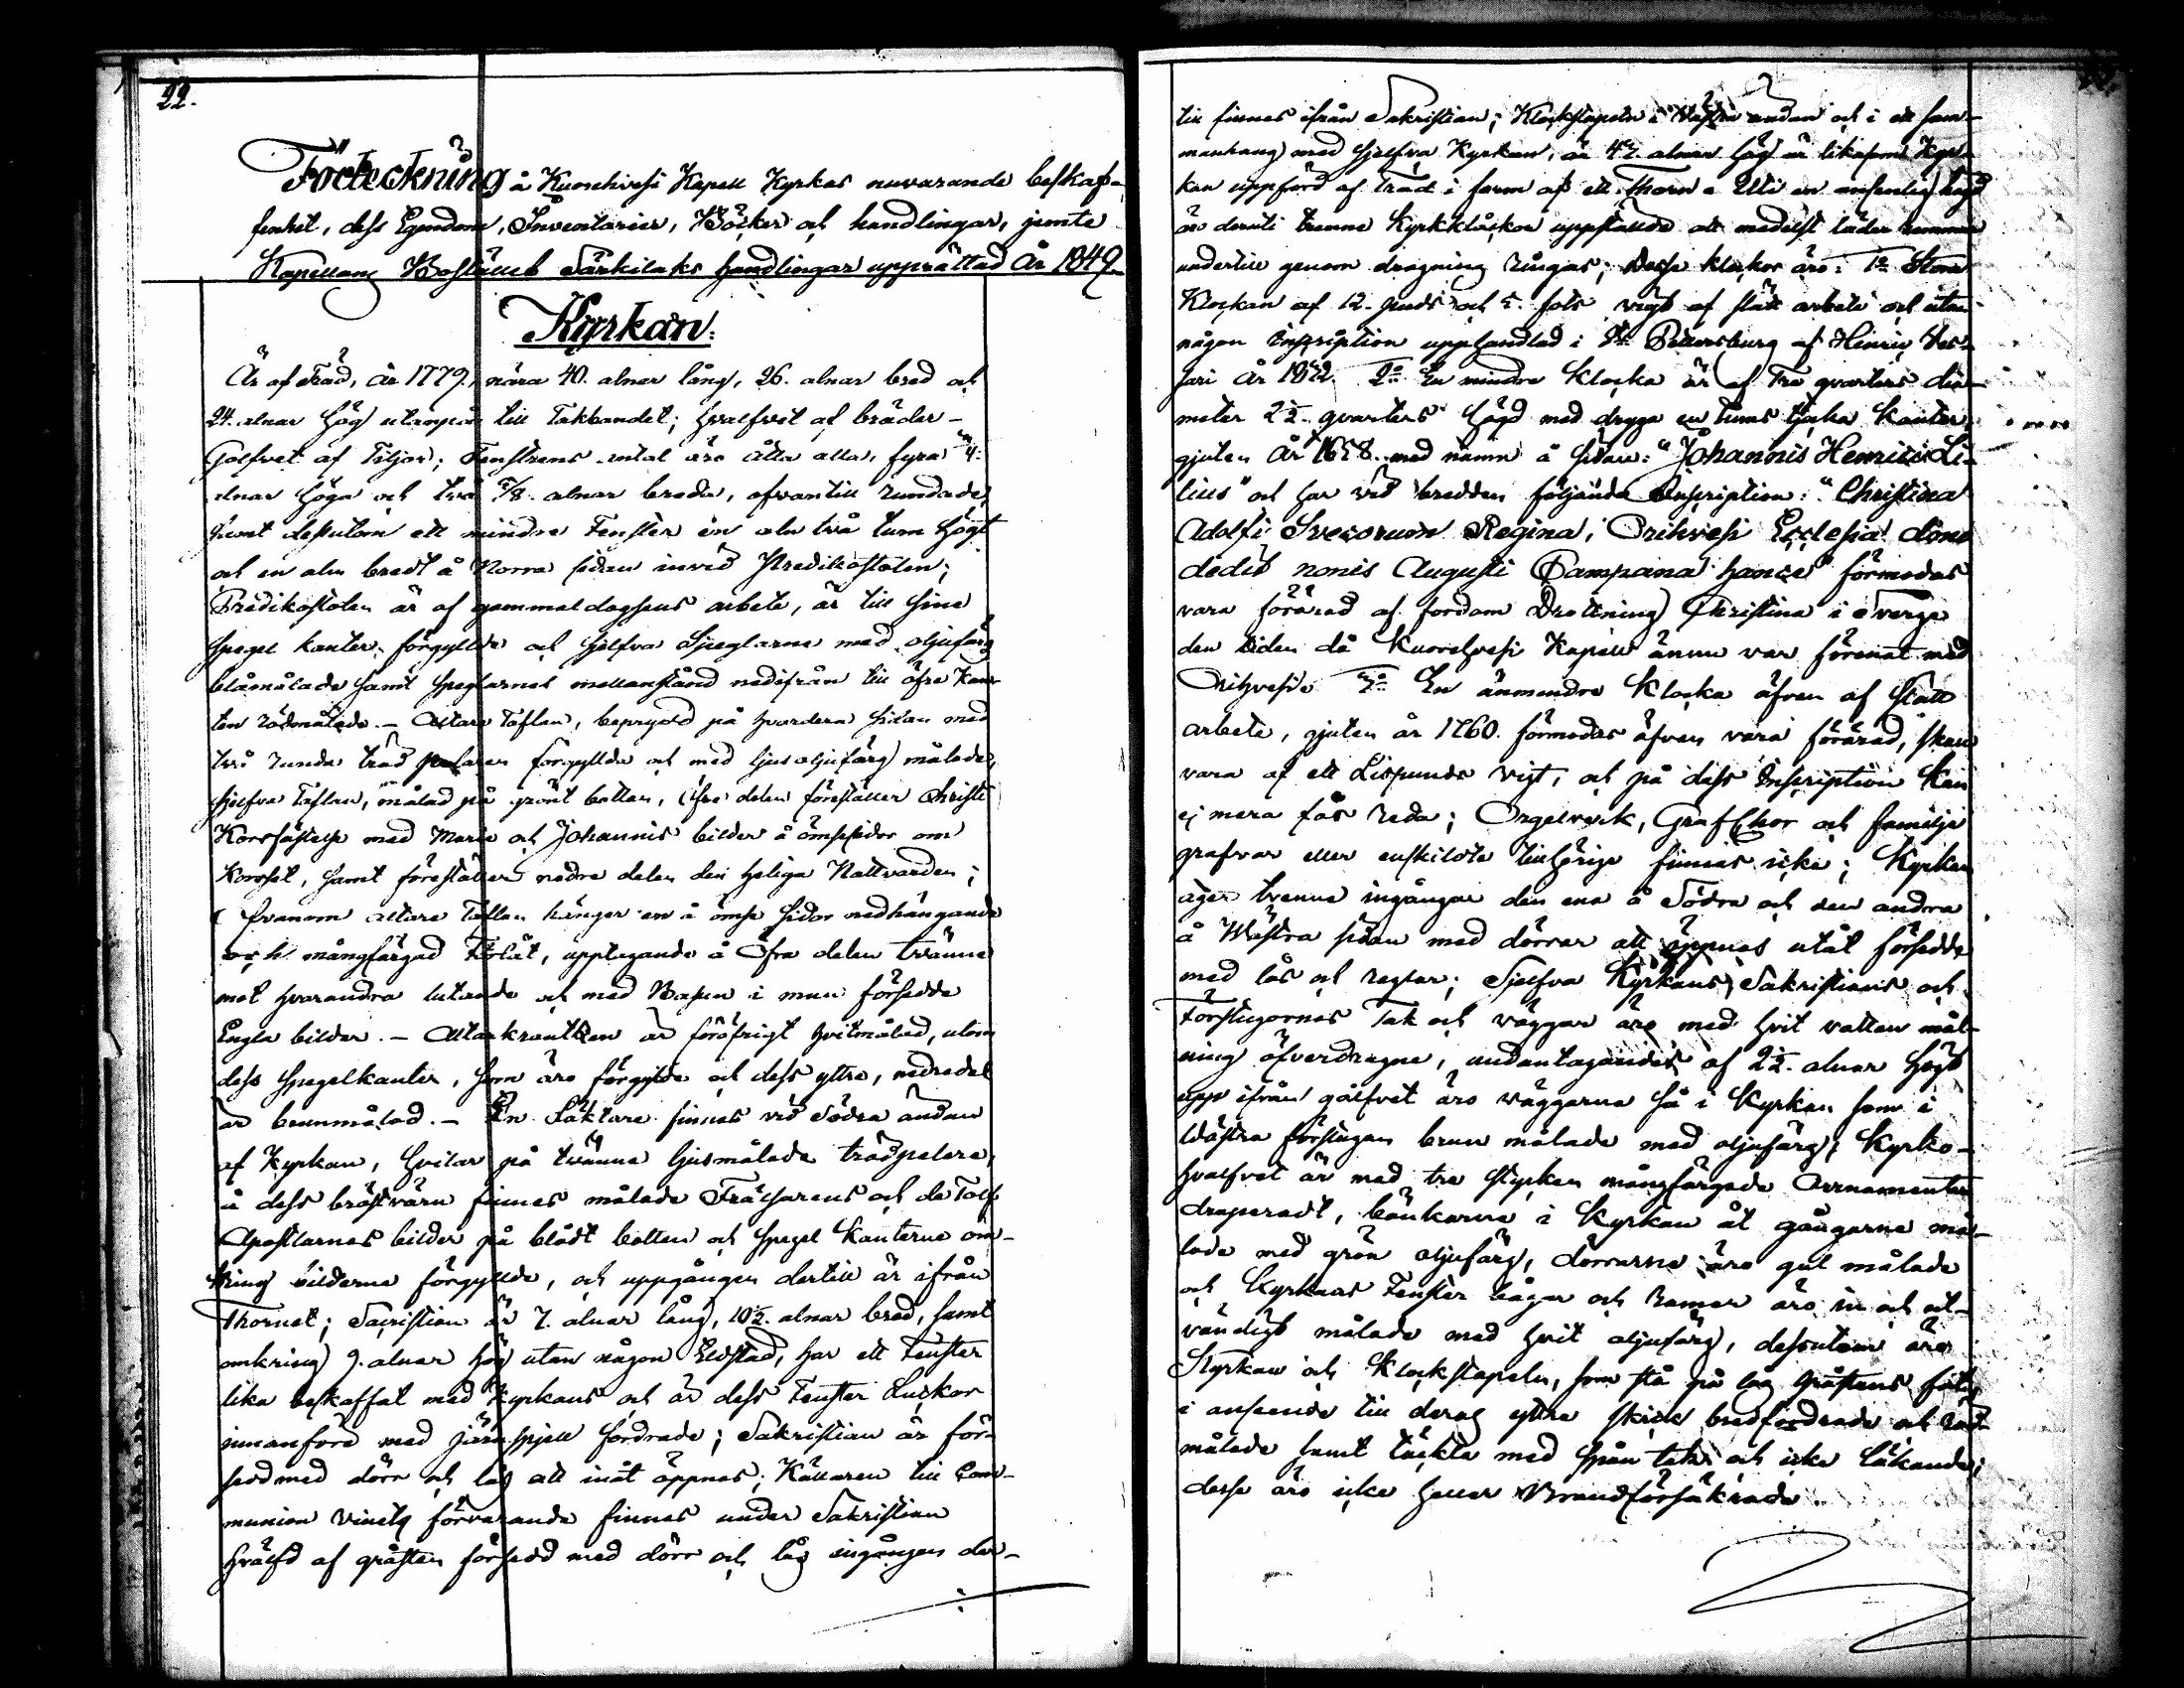 22.
Förteckning å Kuorehvesi Kapell Kyrkas nuvarande beskaf-
fenhet, dess Egendom, Inventarier, Böcker och handlingar, jemte
Kapellans Boställets Särkilaks handlingar upprättad År 1849.
Kyrkan.
Är af Träd, år 1779, nära 40. alnar lång, 26. alnar bred och
24. alnar hög utanpå till Takbandet; hvalfvet af bräder -
Golfvet af Tiljor; Fenstrens antal äro åtta alla, fyra 4:
alnar höga och två 7/8 alnar breda, ofvantill rundade,
samt dessutom ett mindre Fenster en aln två tum högt
och en aln bredt å Norra sidan invid Predikostolen;
Predikostolen är af gammaldagsens arbete, är till sine
spegel kanter förgylld och sjelfva Speglarne med oljufärg
blåmålade samt speglarnes mellanstånd nedifrån till öfre Kan-
ten rödmålade. - Altare Taflan, beprydd på hvardera sidan med
två runda träd pelarer förgyllde och med ljus oljufärg målade,
sjelfva Taflan, målad på grönt botten, öfre delen föreställer Christi
Korsfästelse med Marie och Johannis bilder å ömse sidor om
Korsset, samt föreställer nedre delen den heliga Nattvarden;
ofvanom altare Taflan hänger en å ömse sidor nedhängande
och mångfärgad Förlåt, upptagande å Öfra delen tvänne
mot hvarandra lutande och med Basun i mun försedde
Engla bilder. - Altarkrantsen är föröfrigt hvitmålad, utom
dess spegelkanter, som äro förgyllde och dess yttre, nedredel
är brunmålad. - En Läktare finnes vid Södra ändan
af Kyrkan, hvilar på tvänne ljusmålade trädpelare,
å dess bröstvärn finnes målade Frälsarens och de Tolf
Apostlarnes bilder på blådt botten och spegel kanterne om-
kring bilderne förgyllde, och uppgången dertill är ifrån
Thornet; Sacristian är 7. alnar lång, 10½. alnar bred, samt
omkring 9. alnar hög utan någon Eldstad, har ett Fenster
lika beskaffat med Kyrkans och är dess Fenster Luckor
innanföre med järn spjell fordrade; Sakristian är för-
sedd med dörr och lås att inåt öppnas; Källaren till Com-
munion vinets förvarande finnes under Sakristian
hvälfd af gråsten försedd med dörr och lås ingången der-
till finnes ifrån Sakristian; Klockstapeln i Västra ändan och i ett sam-
manhang med sjelfva Kyrkan, är 42. alnar hög är likasom Kyr-
kan uppförd af Träd i form af ett Thorn. Uti en ansenlig höjd
äro deruti trenne Kyrkklåckor uppställde att medelst läder remmar
undertill genom dragning ringas; Desse klockor äro: 1o Stora
Klockan af 12. puds och ... vigt af slätt arbete och utan
någon Inscription upphandlad i St. Pettersburg af Henric
År 1822. 2o En mindre Klocka är af Tre qvarters dia-
meter 2½. qvarters högd med dryga en tums tjocka kanter,
gjuten År 1658. med namn å sidan: "Johannis Henrici Li-
lius" och har vid bredden följande Inscription: "Christina
Adolfi Svecorum Regina, Orihvesi Ecclesia dono
dedit nonis Augusti Campana hance" förmodas
vara förärad af fordom Drottning Christina i Sverge
den tiden då Kuorehvesi Kapell ännu var förenat med
Orihvesi. 3o En änmindre Klocka äfven af slätt
arbete, gjuten år 1760. förmodas äfven vara förärad, skall
vara af ett Lispunds vigt, och på dess Inscription kan
ej mera fås reda; Orgelverk, Graf Chor och familje
grafvar eller enskildte tillhörige finnas icke; Kyrkan
äger tvenne ingångar den ena å Södra och den andra
å Wästra sidan med dörrar att öppnas utåt försedde
med lås och reglar; Sjelfva Kyrkans, Sakristians och
Förstugornes Tak och väggar äro med hvit vatten mål-
ning öfverdragne, undantagandes af 2½. alnar högt
upp ifrån golfvet äro väggarna så i Kyrkan som i
Wästra förstugan brun målade med oljufärg; Kyrko-
hvalfvet är med tre stycken mångfärgade Ornamenter
draperadt, bänkarne i Kyrkan åt gångarne må-
lade med grön oljufärg, dörrarne äro gul målade
och Kyrkans Fenster bågar och Ramar äro in och ut-
vändigt målade med hvit oljufärg, dessutom äro
Kyrkan och Klockstapeln, som stå på låg Gråstens fot,
i anseende till deras yttre skick brädfordrade och röd-
målade samt täckta med spån tak och icke läkande;
desse äro icke heller Brandförsäkrade.